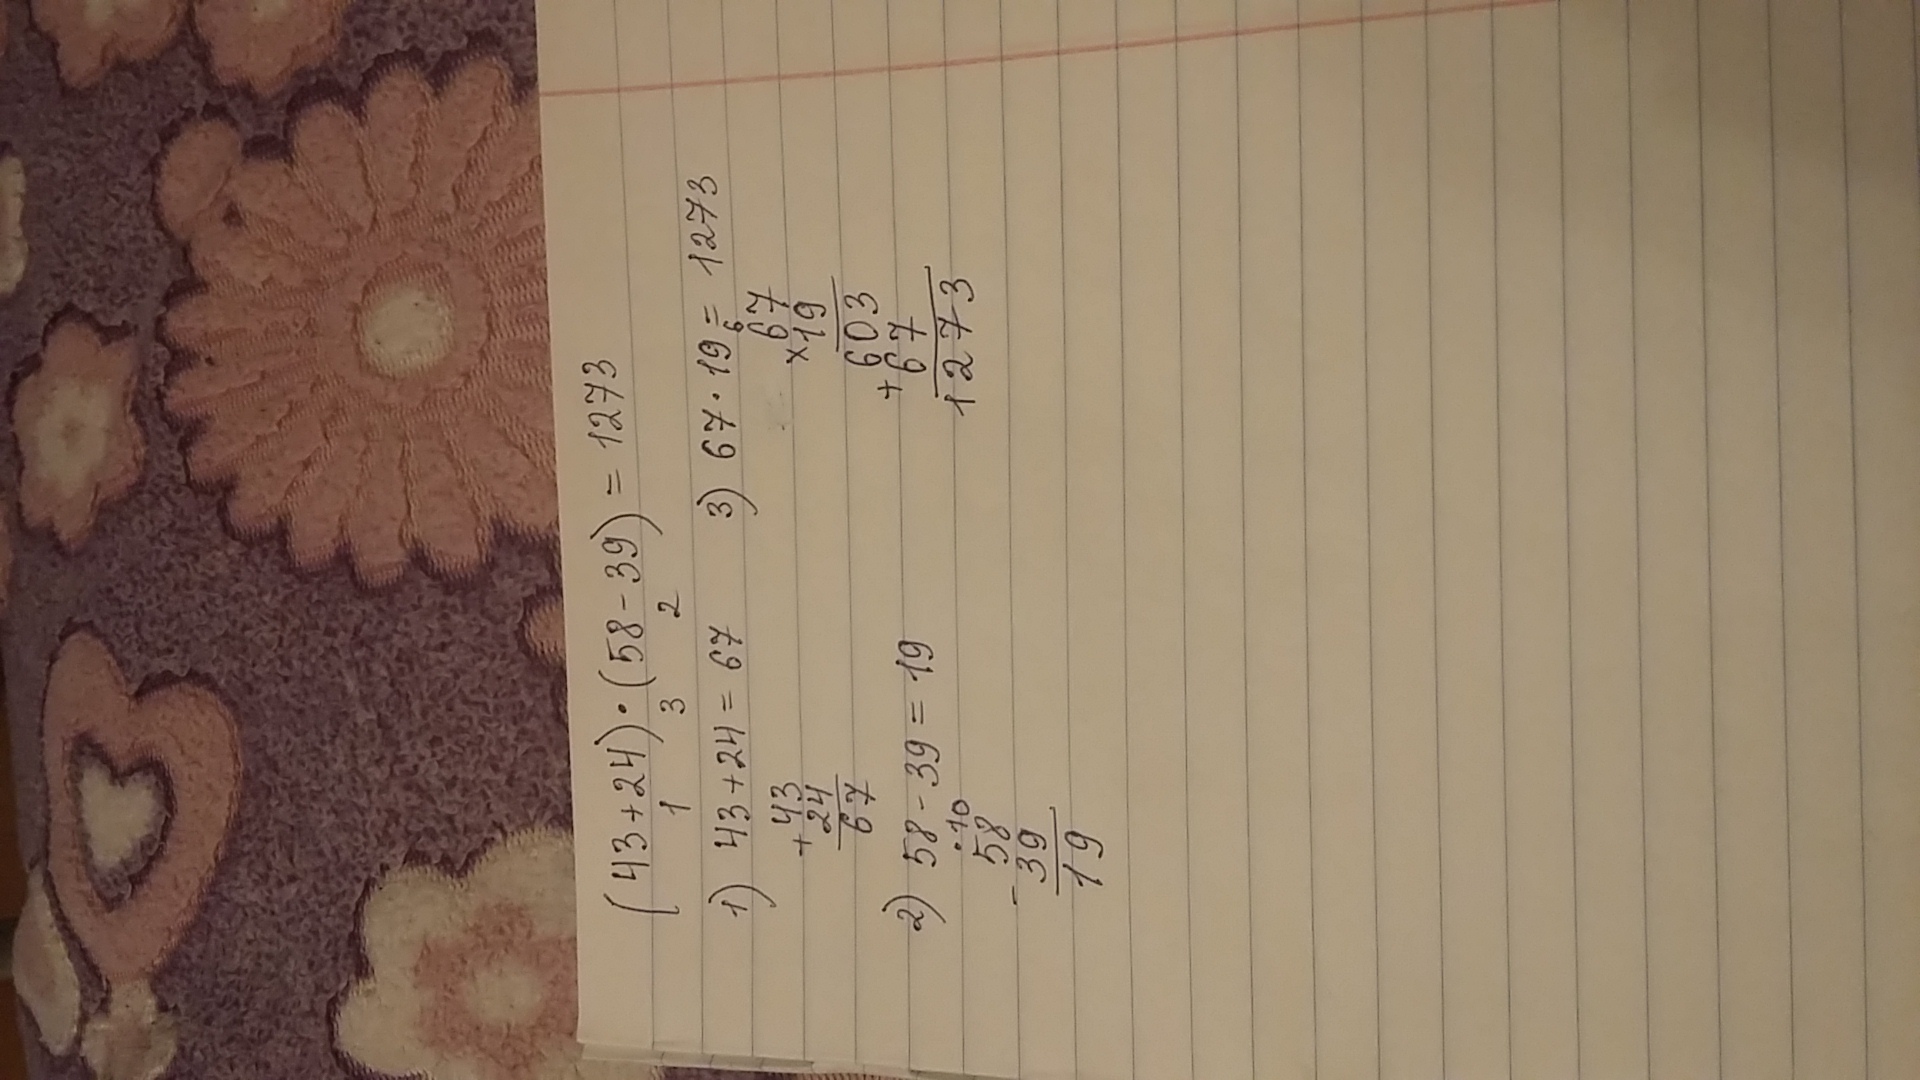 (43+24)·(58-39)=1273
1 3 2
1) 43+24=67
+43
24
67
2) 58-39=19
·10
58
-39
19
3) 67·19=1273
6
67
×19
603
+67
1273